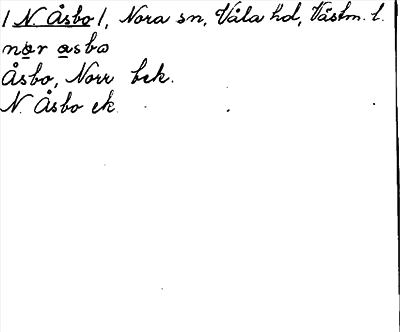 / N. Åsbo /, Nora sn, Våla hd, Västm. l.
nor asbo
Åsbo, Norr bek.
N. Åsbo ek.